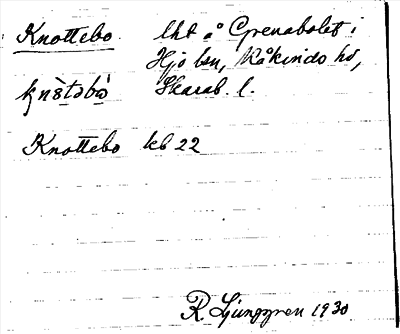 Knottebo. lht å Grenabolet i
Hjo lsn, Kåkinds hd,
Skarab. l.
Knottebo kb 22
R. Ljunggren 1930